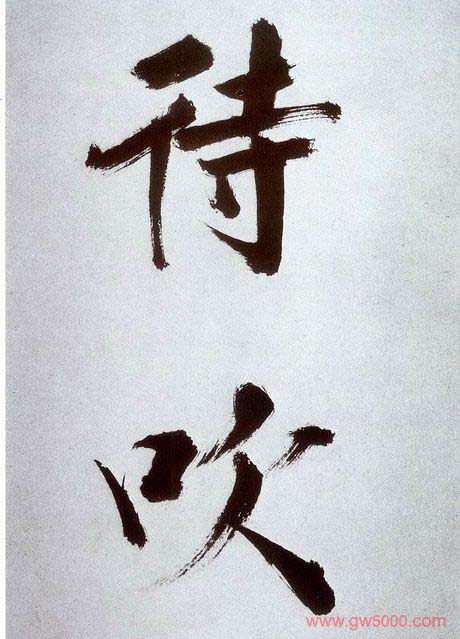 待
吹
www.gw5000.com